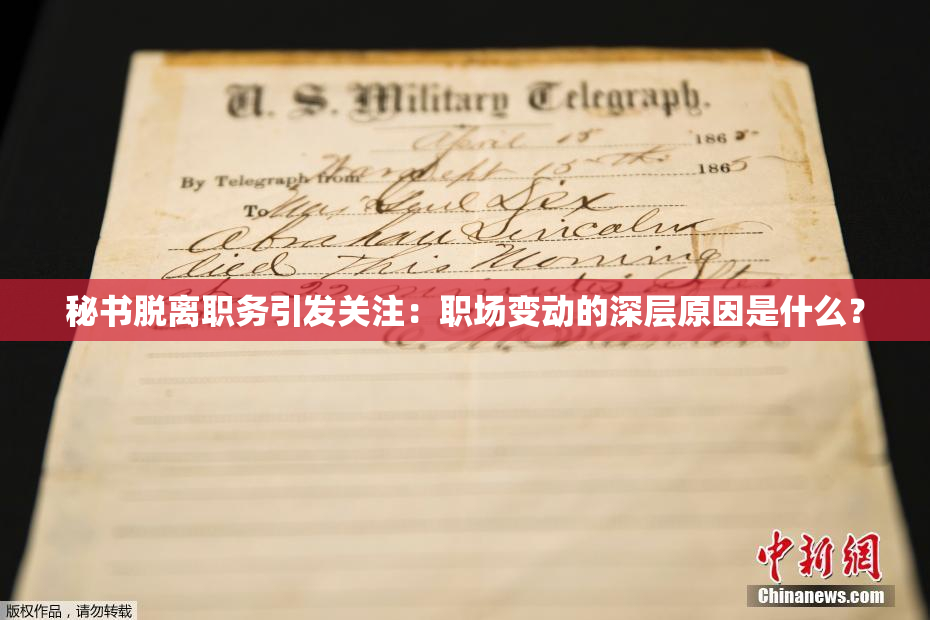 U. S. Military Telegraph.
April 15 1865
By Telegraph from War Dept 15th 1865
To Maj Genl Dix
Abraham Lincoln
died This Morning
at 22 minutes after
秘书脱离职务引发关注：职场变动的深层原因是什么？
E. M. Stanton
中新网
Chinanews.com
版权作品，请勿转载